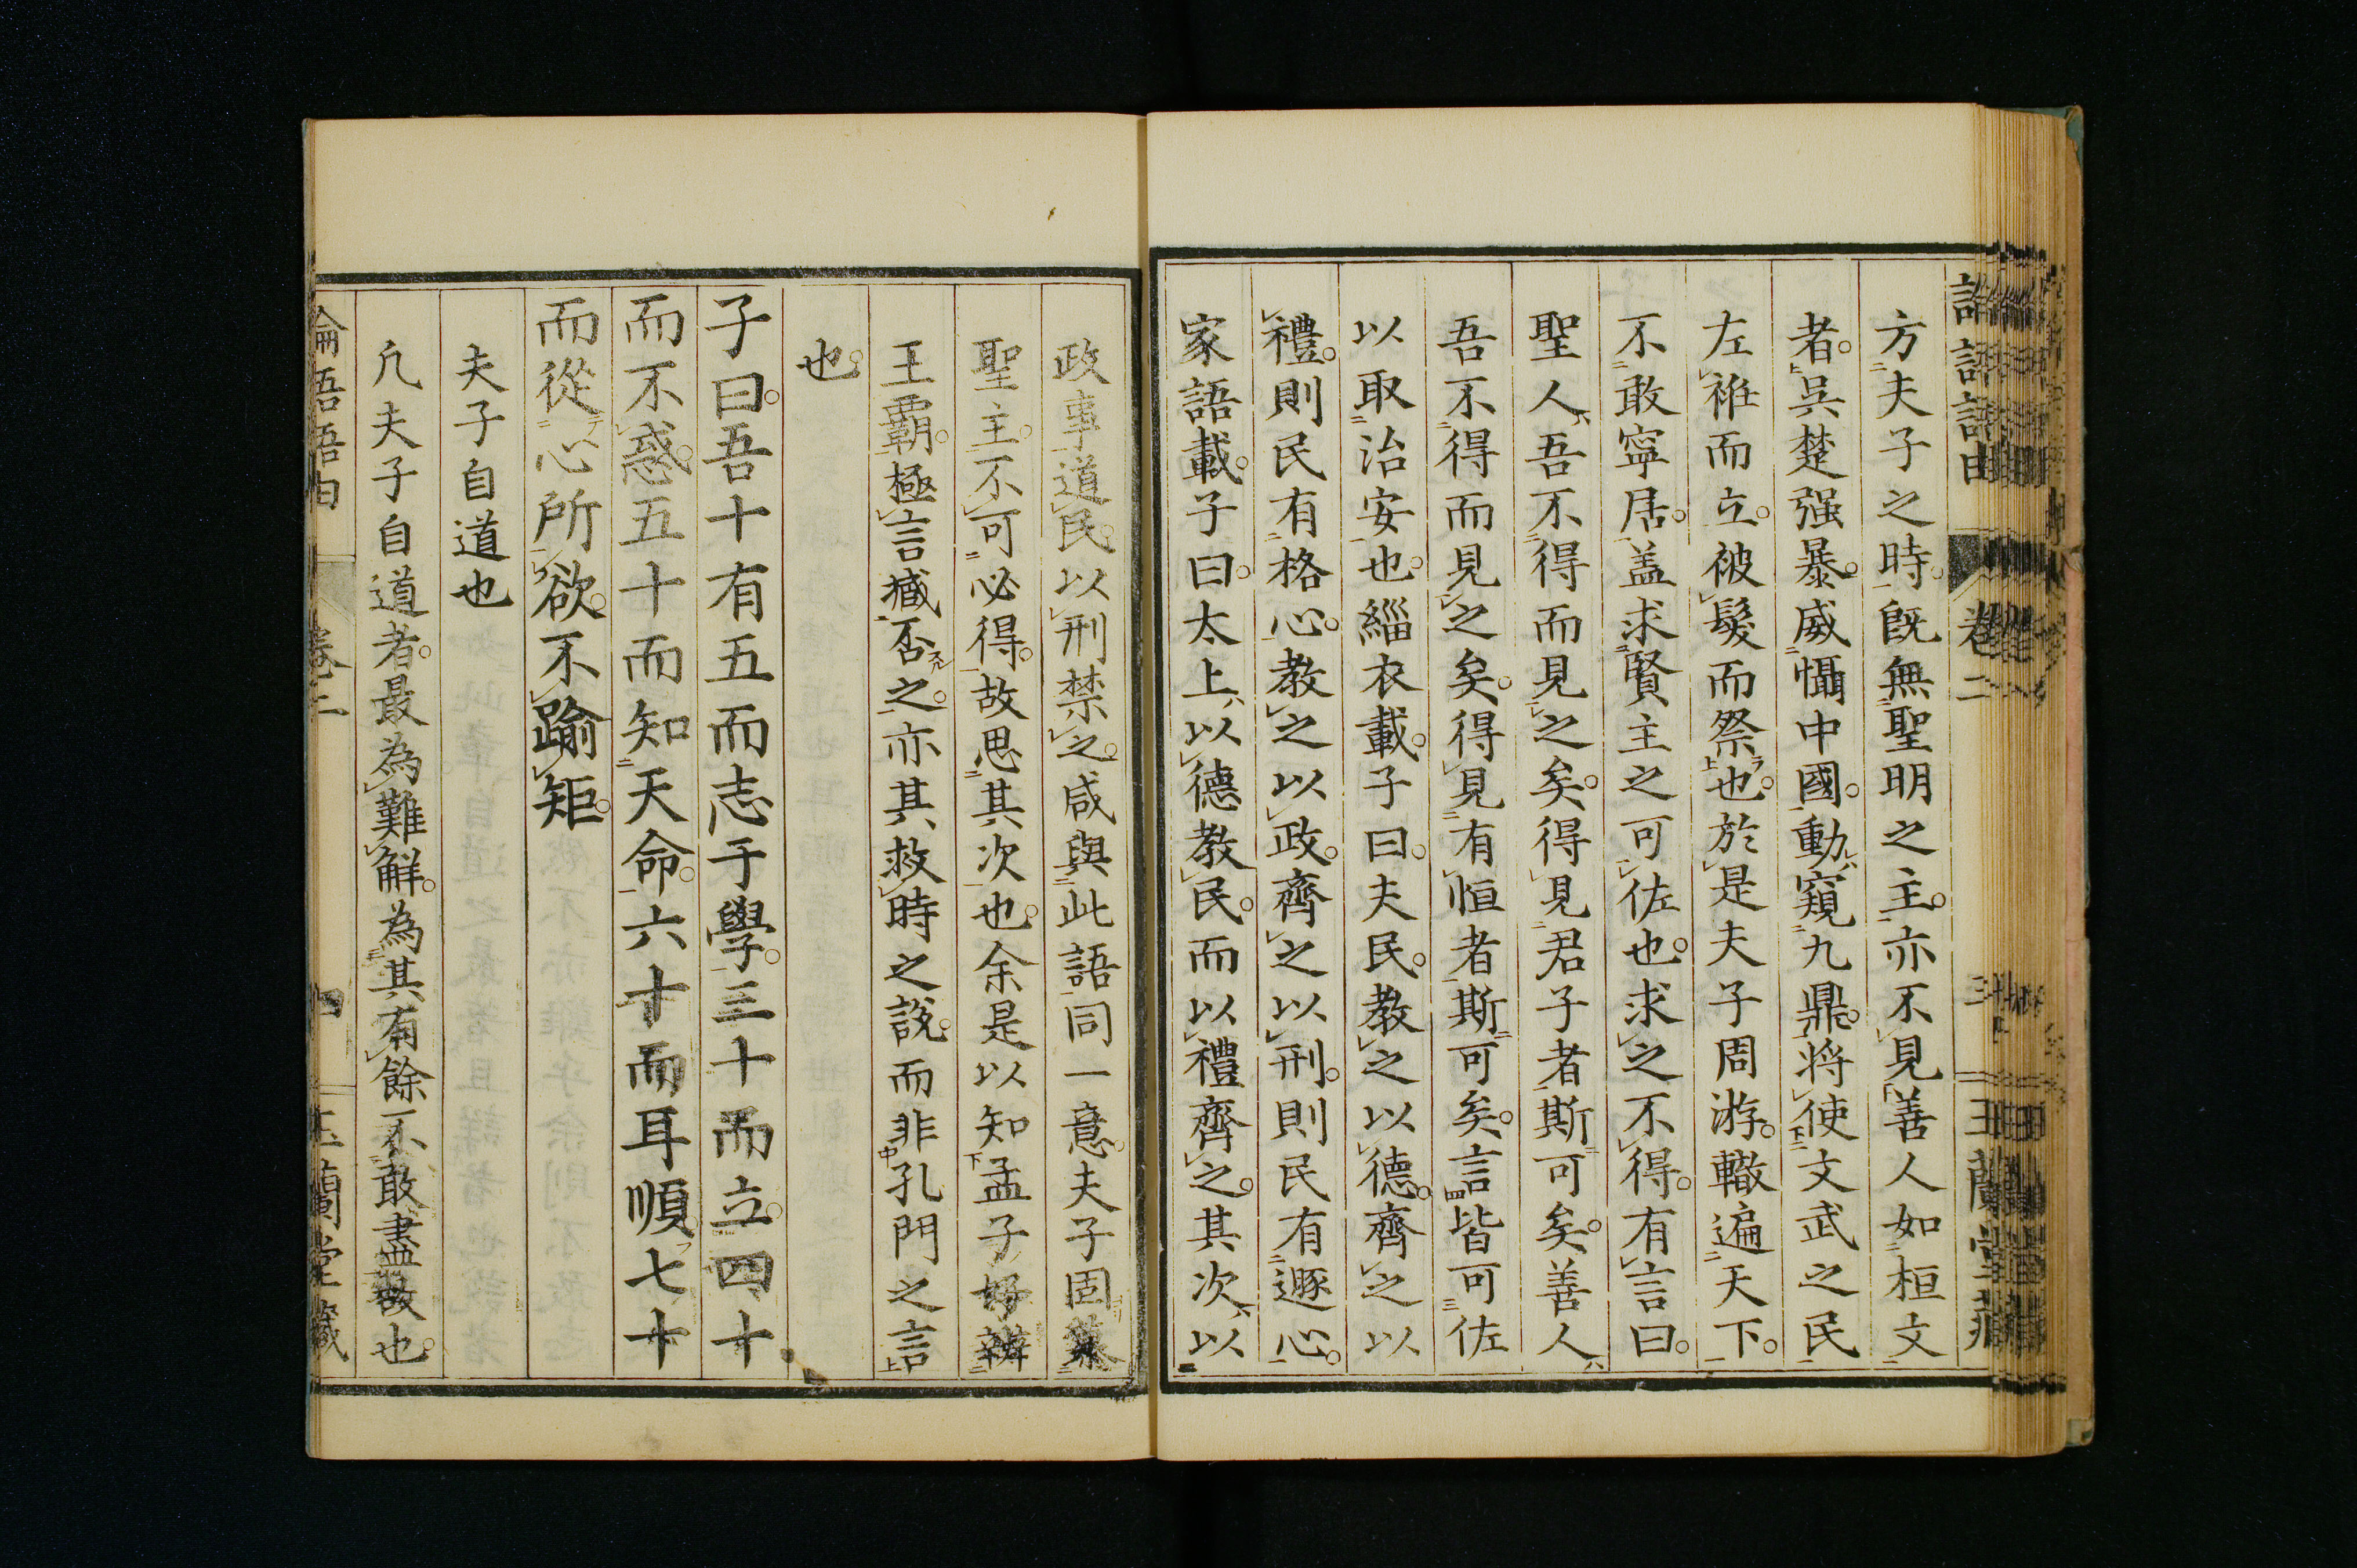 論語語由 卷二 三 玉蘭堂藏
方夫子之時。既無聖明之主。亦不見善人如桓文
者。吳楚强暴。威懾中國。動窺九鼎。將使文武之民
左袵而立。被髮而祭也。於是夫子周游。轍遍天下。
不敢寧居。盖求賢主之可佐也。求之不得。有言曰。
聖人吾不得而見之矣。得見君子者斯可矣。善人
吾不得而見之矣。得見有恒者斯可矣。言皆可佐
以取治安也。緇衣載。子曰。夫民。教之以德。齊之以
禮。則民有格心。教之以政。齊之以刑。則民有遯心。
家語載。子曰。太上以德教民。而以禮齊之。其次以
政事道民。以刑禁之。咸與此語同一意。夫子固葇
聖主。不可必得。故思其次也。余是以知孟子好辯
王霸。極言臧否之。亦其救時之說。而非孔門之言
也。
子曰。吾十有五而志于學。三十而立。四十
而不惑。五十而知天命。六十而耳順。七十
而從心所欲。不踰矩。
夫子自道也
凢夫子自道者。最為難解。為其有餘不敢盡故也。
論語語由 卷二 四 玉蘭堂藏